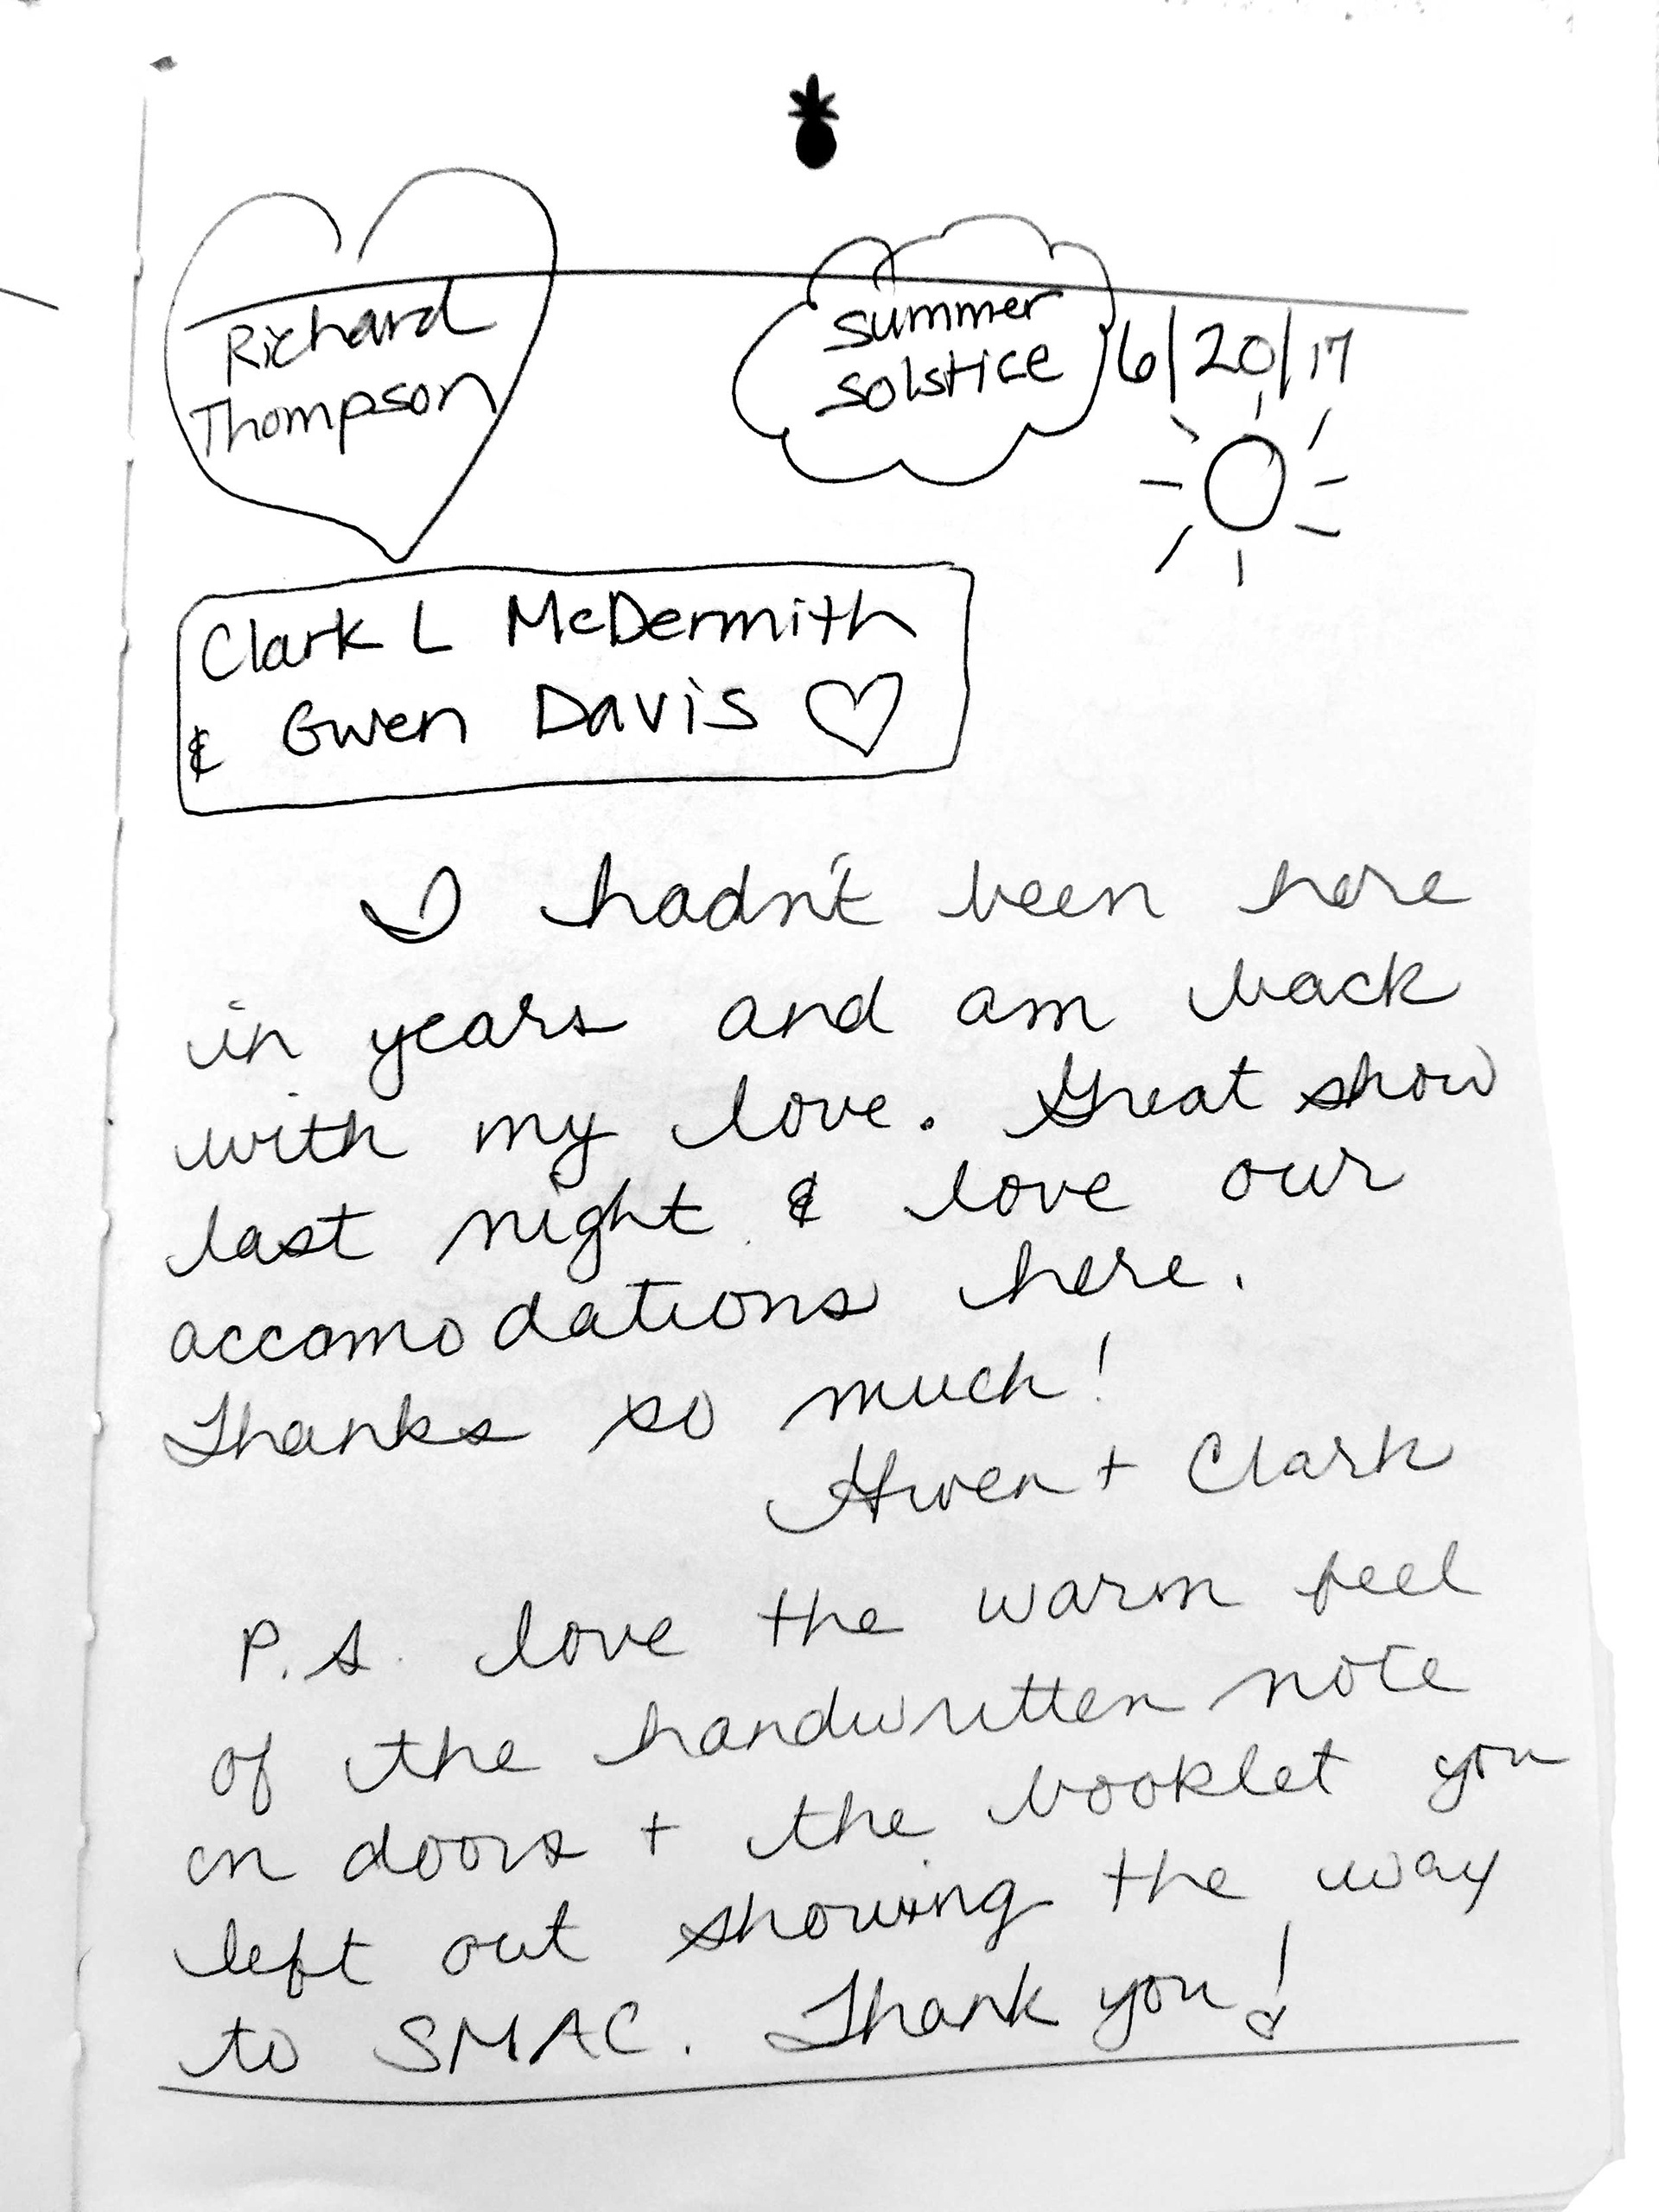 Richard
Thompson
summer
solstice
6/20/17
Clark L McDermith
& Gwen Davis
I hadn't been here
in years and am back
with my love. Great show
last night & love our
accomodations here.
Thanks so much!
Gwen + Clark
P.S. love the warm feel
of the handwritten note
on doors + the booklet you
left out showing the way
to SMAC. Thank you!